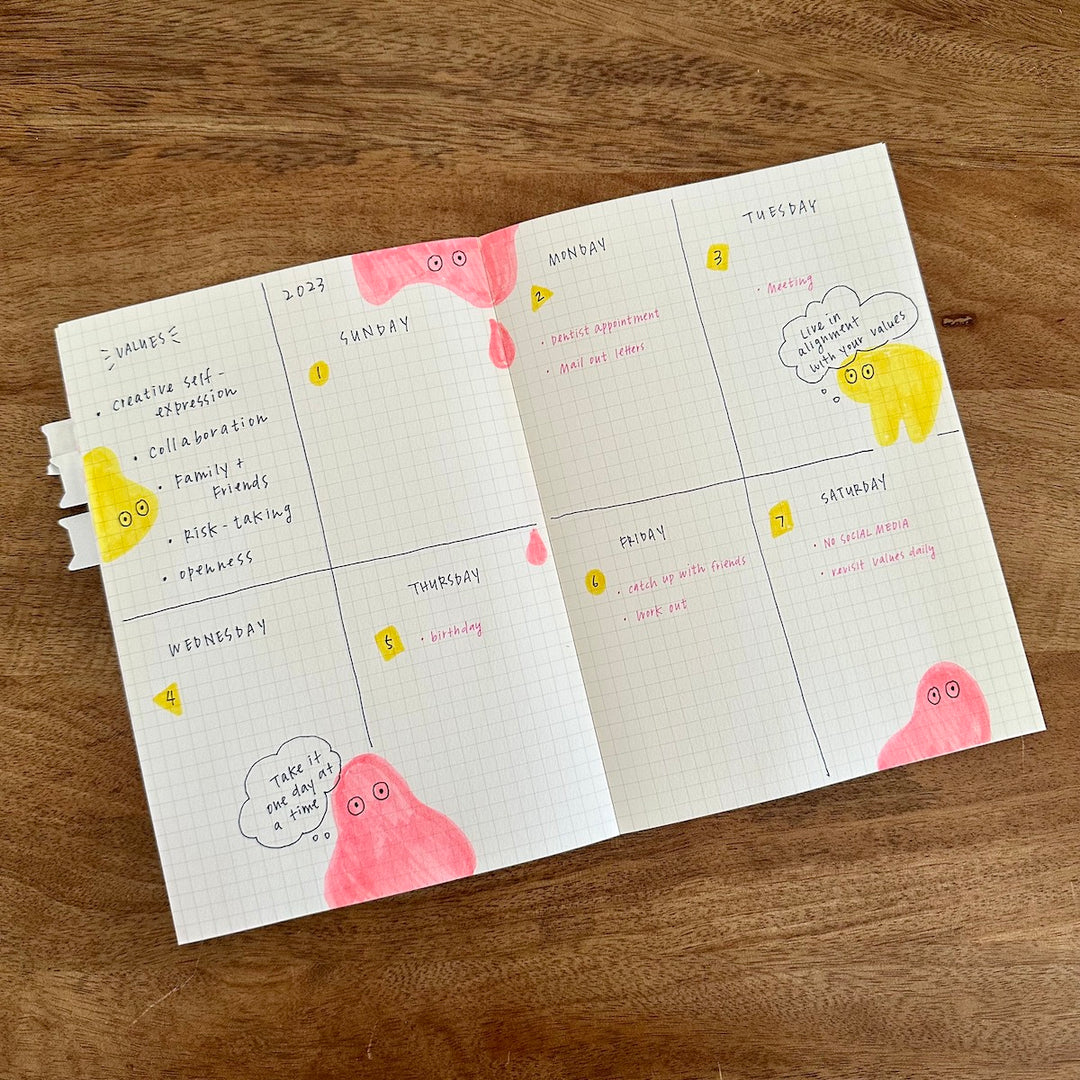 VALUES
• creative self-
expression
• collaboration
• Family +
Friends
• Risk-taking
• openness
2023
SUNDAY
1
MONDAY
2
• Dentist appointment
• Mail out letters
TUESDAY
3
• Meeting
Live in
alignment
with your values
WEDNESDAY
4
Take it
one day at
a time
THURSDAY
5
• birthday
FRIDAY
6
• catch up with friends
• Work out
SATURDAY
7
• NO SOCIAL MEDIA
• revisit values daily